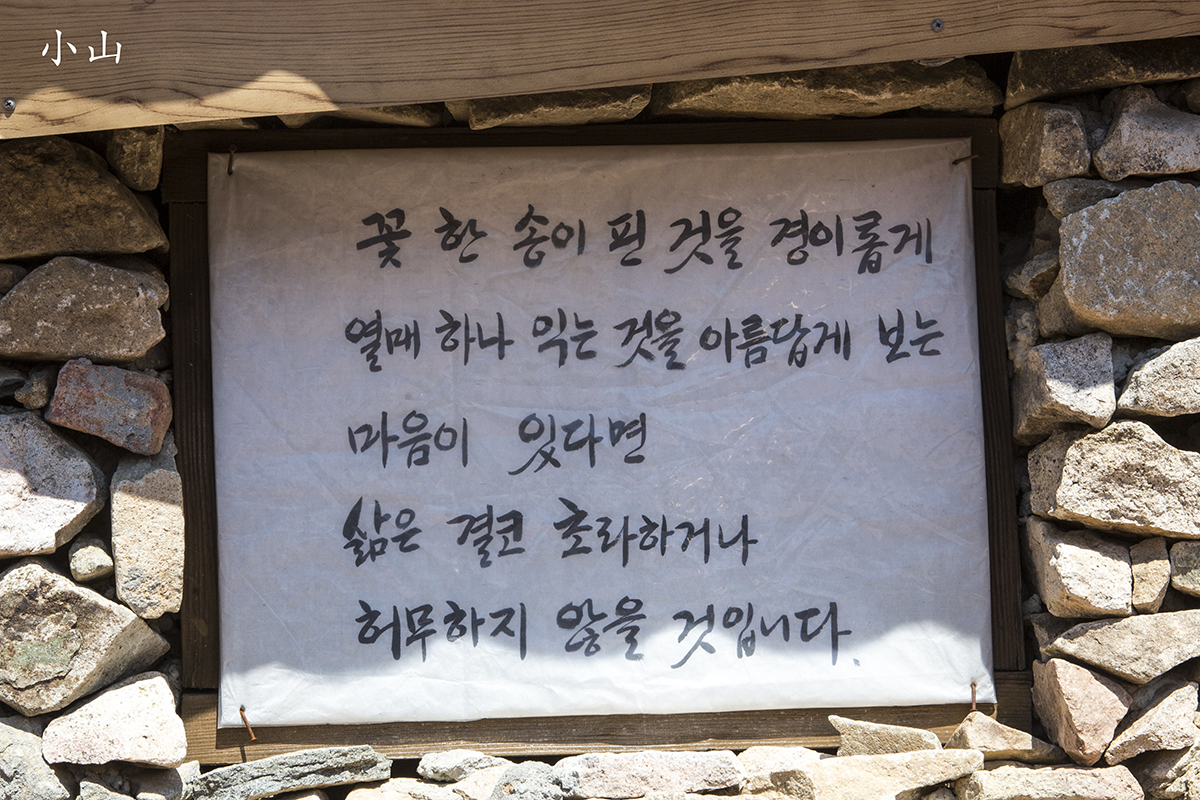 小山
꽃 한 송이 핀 것을 경이롭게
열매 하나 익는 것을 아름답게 보는
마음이 있다면
삶은 결코 초라하거나
허무하지 않을 것입니다.